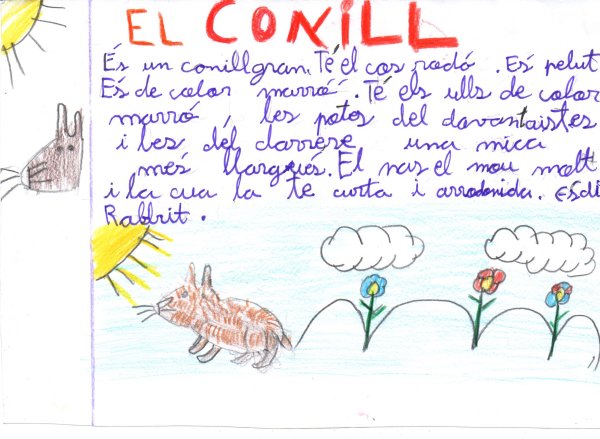 EL CONILL
És un conill gran. Té el cos rodó. Es pelut
És de color marró. Té els ulls de color
marró, les potes del davant aistes
i les del darrere una mica
més llargues. El nas el mou molt
i la cua la te curta i arrodonida. Es di
Rabbrit.